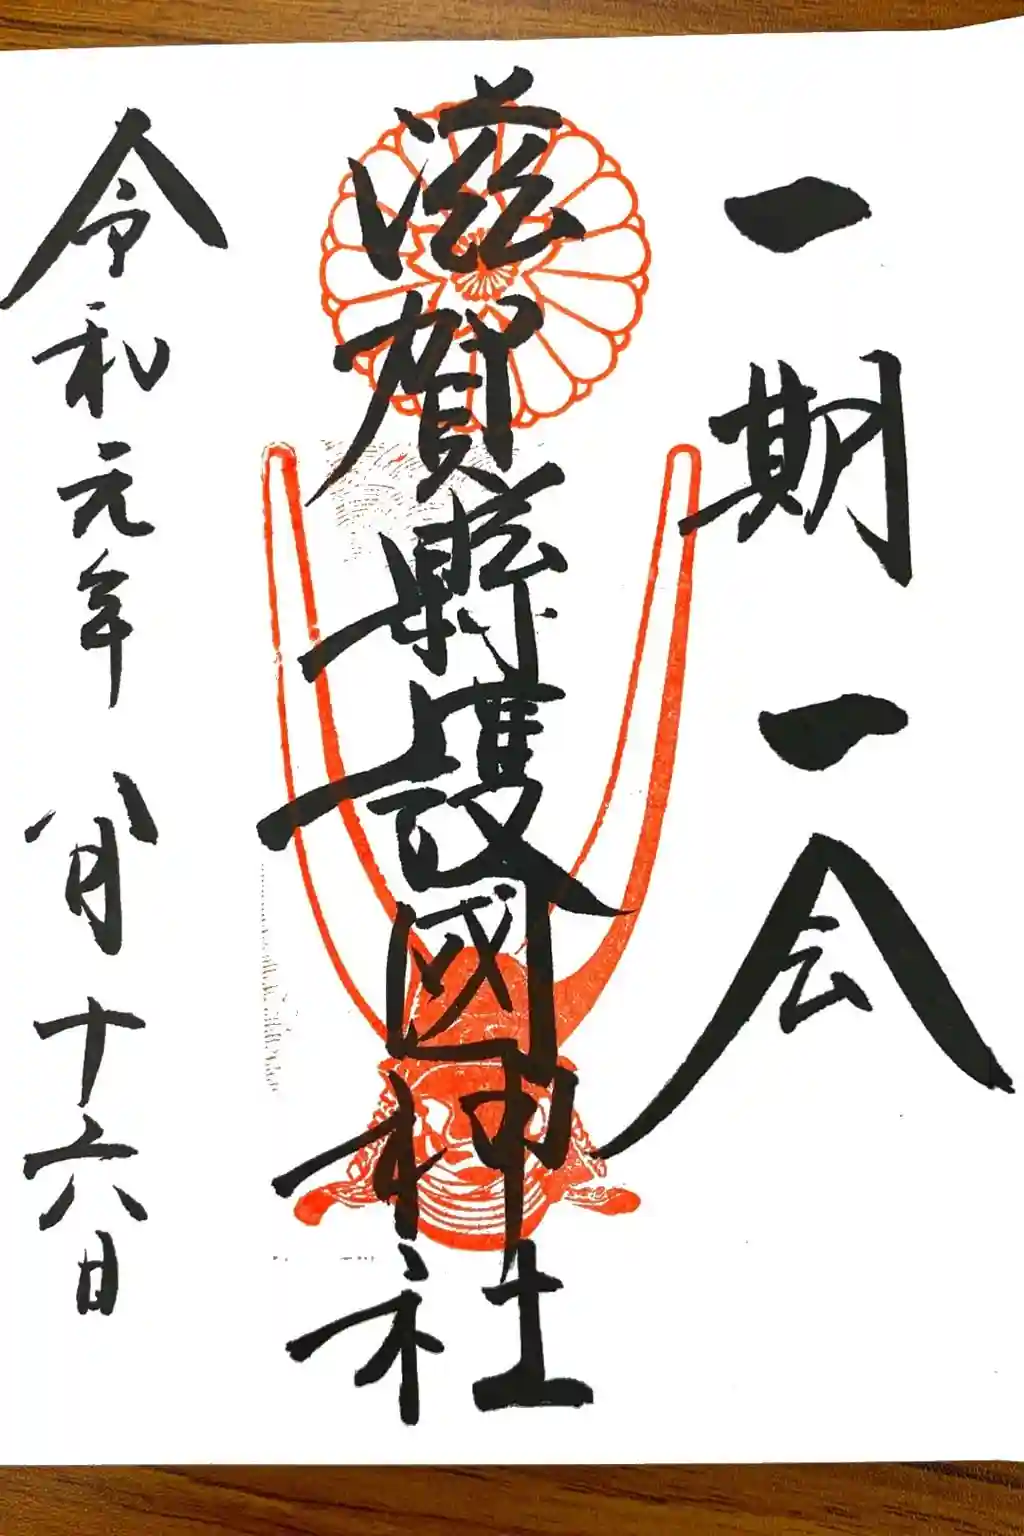 一期一会
滋賀縣護國神社
令和元年 八月十六日